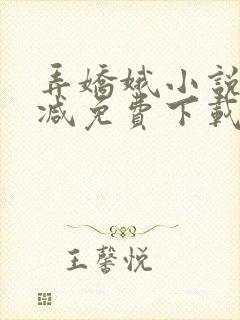 弄嬌娥小說
減免費下載
王馨悅